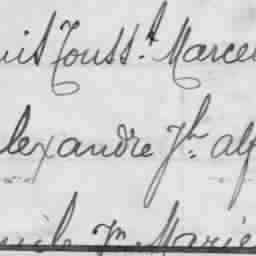 uis Tousst. Marcel
lexandre Jh. alf
mile Jn Marie